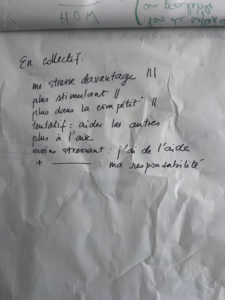 HOM
En collectif:
me stresse davantage |||
plus stimulant ||
plus dans la compétit° ||
tentatif: aider les autres
plus à l'aise
moins stressant: j'ai de l'aide
+ ———: ma responsabilité